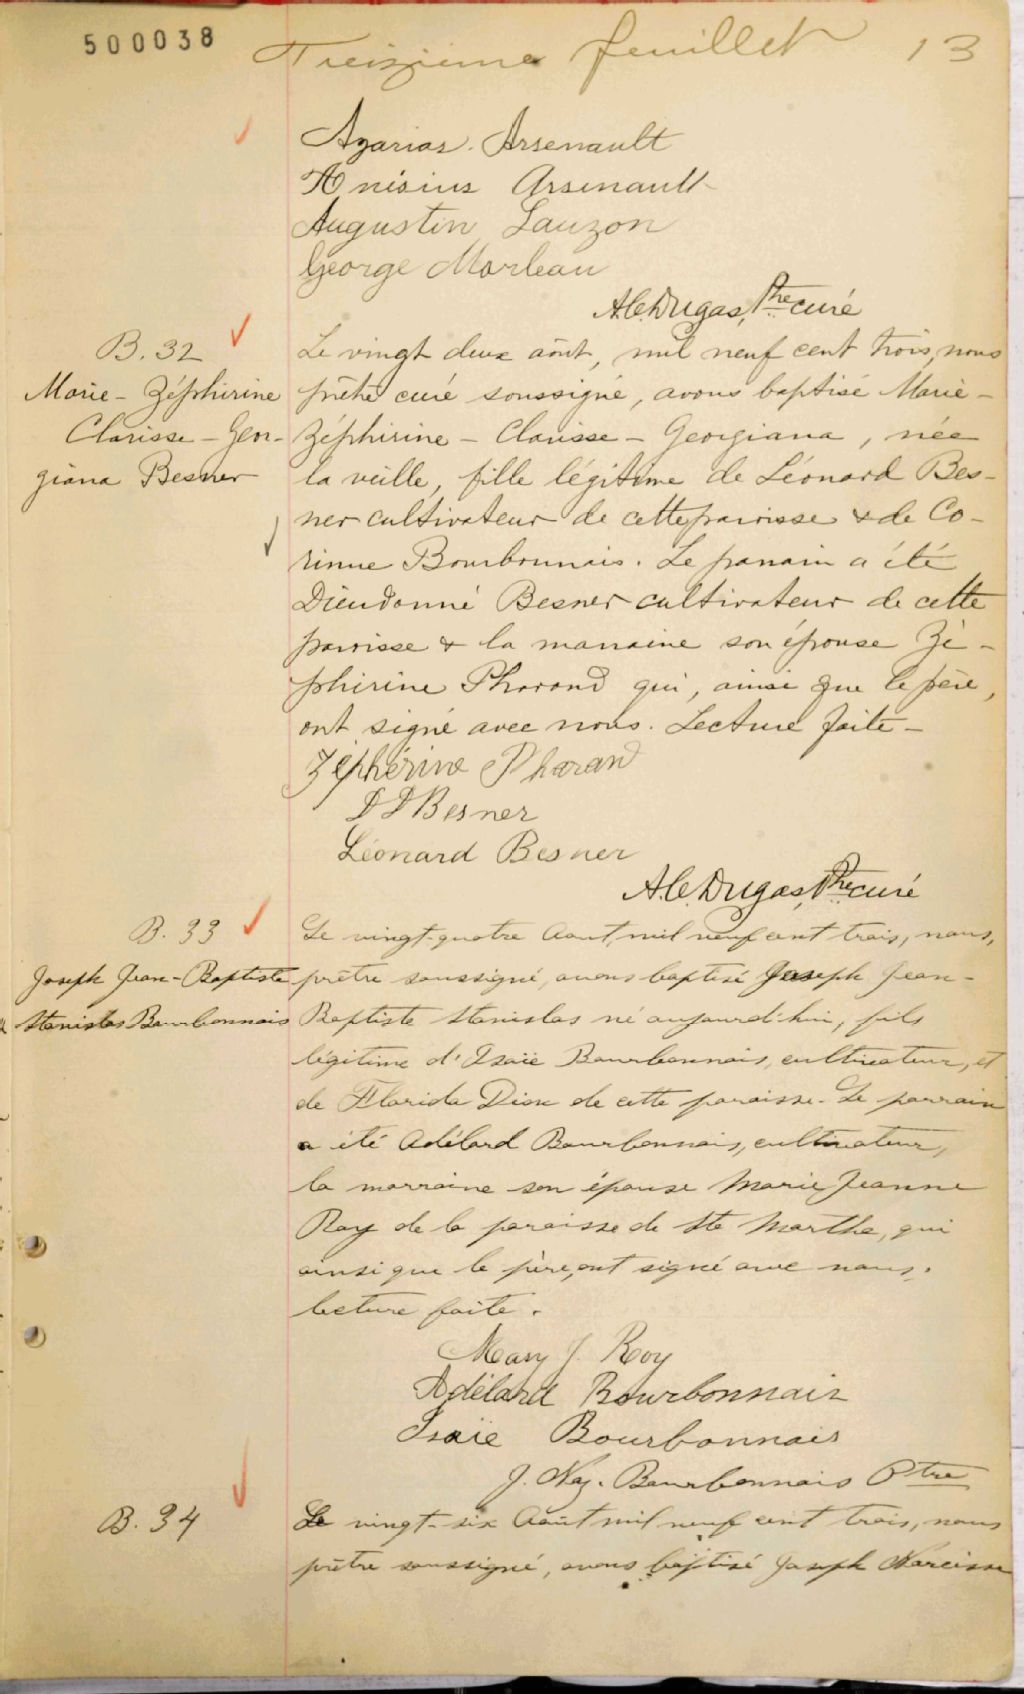 500038
Treizième feuillet 13
Azarias Arsenault
Anésius Arsenault
Augustin Lauzon
George Morleau
A.C. Dugas, Ptre curé
B. 32
Marie - Zéphirine
Clarisse - Geor-
giana Besner
Le vingt deux août, mil neuf cent trois, nous
prêtre curé soussigné, avons baptisé Marie -
Zéphirine - Clarisse - Georgiana, née
la veille, fille légitime de Léonard Bes-
ner cultivateur de cette paroisse & de Co-
rinne Bourbonnais. Le parrain a été
Dieudonné Besner cultivateur de cette
paroisse & la marraine son épouse Zé-
phirine Pharand qui, ainsi que le père,
ont signé avec nous. Lecture faite -
Zéphérine Pharand
D D Besner
Léonard Besner
A.C. Dugas, Ptre curé
B. 33
Joseph Jean-Baptiste
Stanislas Bourbonnais
Le vingt-quatre Août mil neuf cent trois, nous,
prêtre soussigné, avons baptisé Joseph Jean-
Baptiste Stanislas né aujourd'hui, fils
légitime d'Isaïe Bourbonnais, cultivateur, et
de Florida Dion de cette paroisse. Le parrain
a été Adélard Bourbonnais, cultivateur,
la marraine son épouse Marie Jeanne
Roy de la paroisse de Ste Marthe, qui
ainsi que le père, ont signé avec nous.
lecture faite.
Mary J. Roy
Adélard Bourbonnais
Isaïe Bourbonnais
J. Naz. Bourbonnais Ptre
B. 34
Le vingt-six Août mil neuf cent trois, nous
prêtre soussigné, avons baptisé Joseph Narcisse